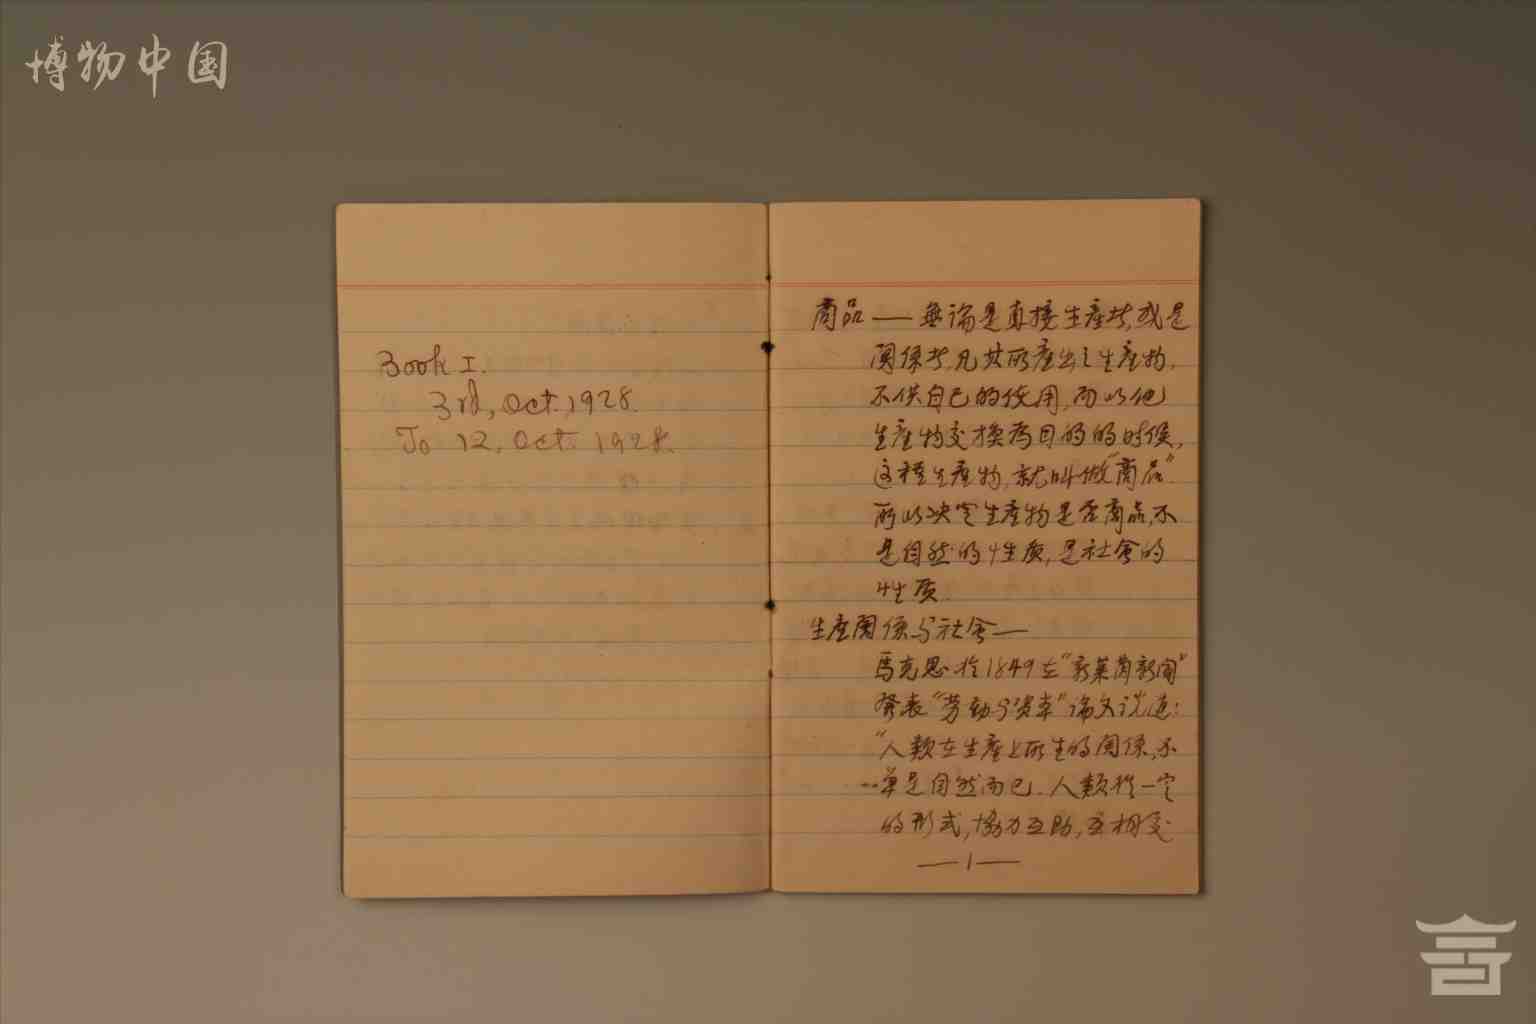 博物中国
Book I.
3rd, Oct. 1928.
To 12, Oct. 1928.
商品——無論是直接生產者,或是
関係者,凡其所產出之生產物,
不供自己的使用,而以他
生產物交換為目的的時候,
这種生產物,就叫做"商品".
所以决定生產物是否商品,不
是自然的性质,是社會的
性质.
生產関係与社會——
馬克思於1849在"新莱茵新聞"
發表"劳動与资本"論文说道:
"人類在生產上所生的関係,不
單是自然而已.人類於一定
的形式,協力互助,互相交
—1—